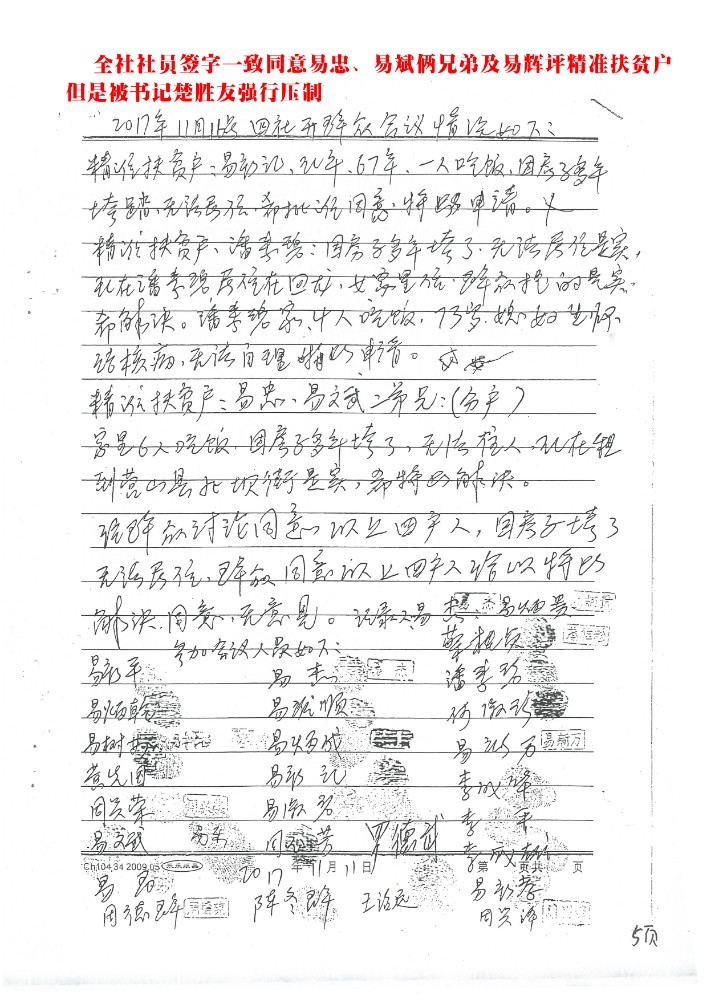 全社社员签字一致同意易忠、易斌俩兄弟及易辉评精准扶贫户
但是被书记楚胜友强行压制
2017年11月11日四社开群众会议情况如下：
精准扶贫户：易新记、现年、67年、一人吃饭，因房子多年
垮踏，无法居住，希批准同意，特此申请。
精准扶贫户、潘季碧：因房子多年垮了、无法居住是实，
现在潘季碧居住在回龙，女家里住，群众提的是实
希解决。潘季碧家、人吃饭，73岁，媳妇生病
结核病，无法自理特此申请。
精准扶贫户：易忠、易文武二弟兄：（分户）
家里6人吃饭，因房子多年垮了，无法住人，现在租
到营山县北坝街是实，希特此解决。
经群众讨论同意以上四户人，因房子垮了
无法居住，群众同意以上四户人给以特此
解决，同意，无意见。记录人易杰
参加会议人员如下：
易新平 易杰 潘季碧
易炳乾 易琼顺
易树 易炳成 易新万
黄光国 易新记 李成群
周兴荣 易淑君 李
易文武 易东 周 芳 罗德武
Ch104 34 2009.05 年11月11日 第 页共 页
易 2017
周德群 陈冬群 王治远 周兴
5页